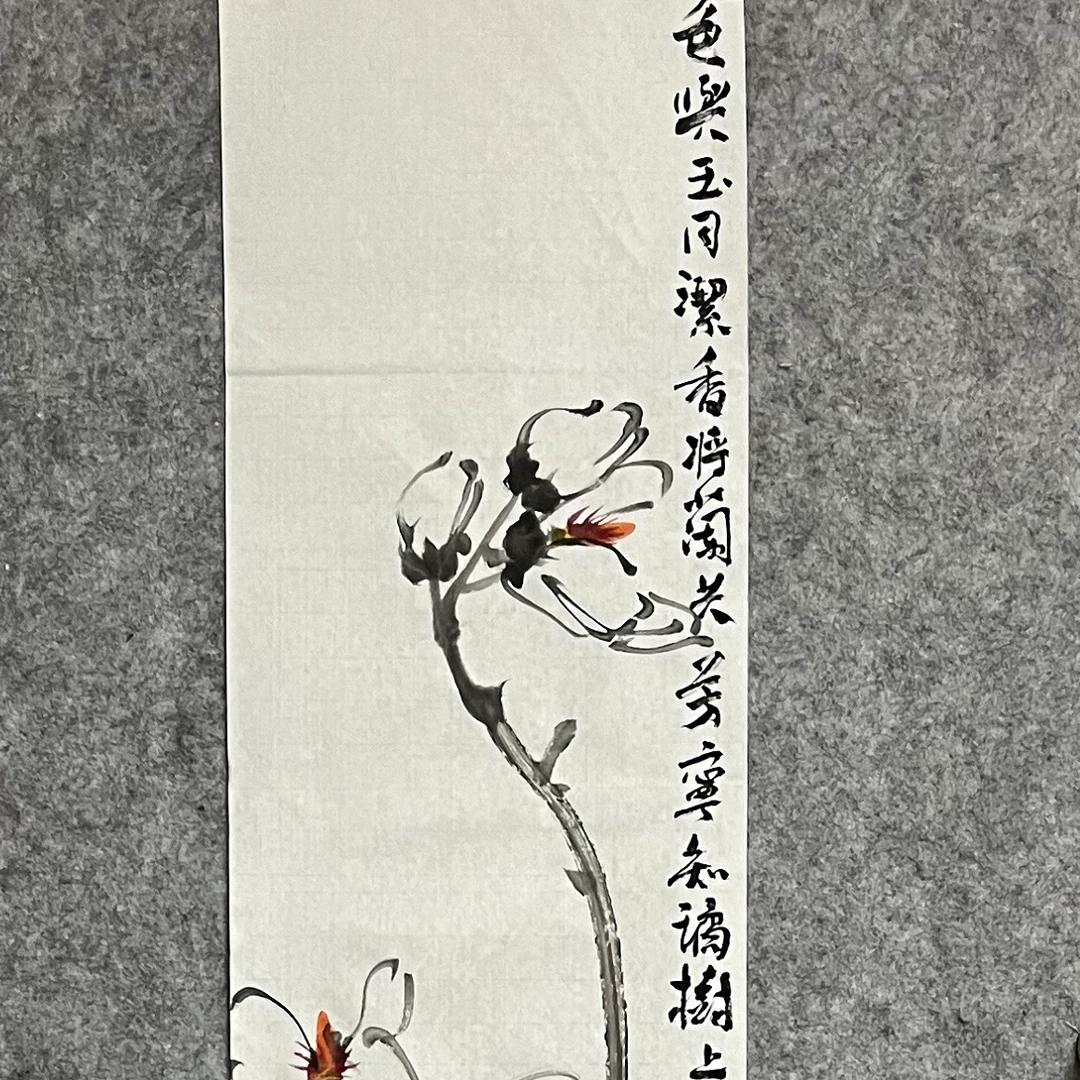 色與玉同潔香将蘭共芳寧知謫樹上